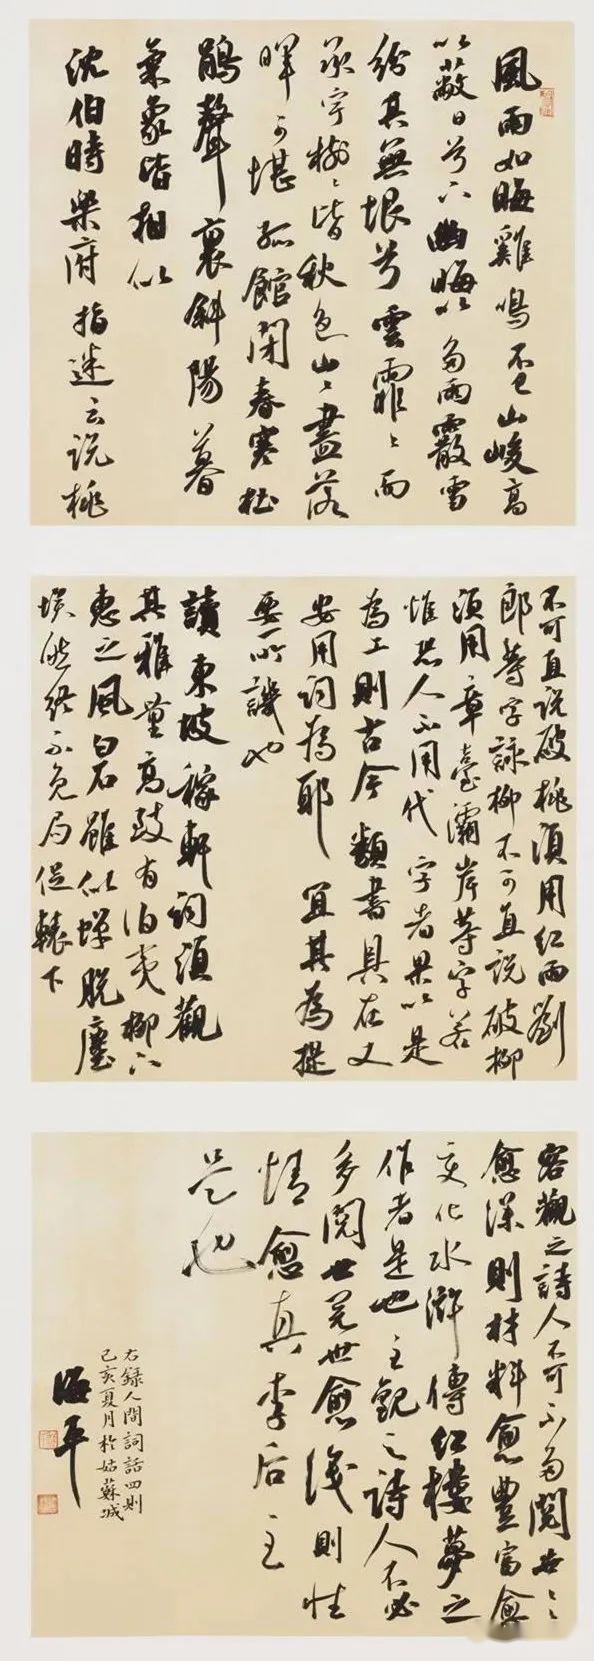 風雨如晦雞鳴不已山峻高
以蔽日兮下幽晦以多雨霰雪
紛其無垠兮雲霏〻而
承宇樹〻皆秋色山〻盡落
暉可堪孤館閉春寒杜
鵑聲裏斜陽暮
氣象皆相似
沈伯時樂府指迷云說桃
不可直說破桃須用紅雨劉
郎等字詠柳不可直說破柳
須用章臺灞岸等字若
惟恐人不用代字者果以是
為工則古今類書具在又
安用詞為耶宜其為提
要所譏也
讀東坡稼軒詞須觀
其雅量高致有伯夷柳下
惠之風白石雖似蟬脫塵
埃然終不免局促轅下
客觀之詩人不可不多閱世〻
愈深則材料愈豐富愈
變化水滸傳紅樓夢之
作者是也主觀之詩人不必
多閱世閱世愈淺則性
情愈真李后主
是也
右錄人間詞話四則
己亥夏月於姑蘇城
海平